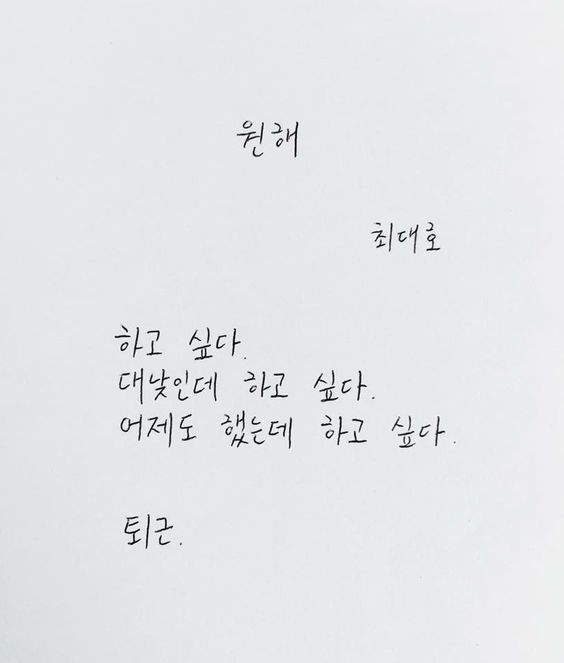 원해
최대호
하고 싶다.
대낮인데 하고 싶다.
어제도 했는데 하고 싶다.
퇴근.